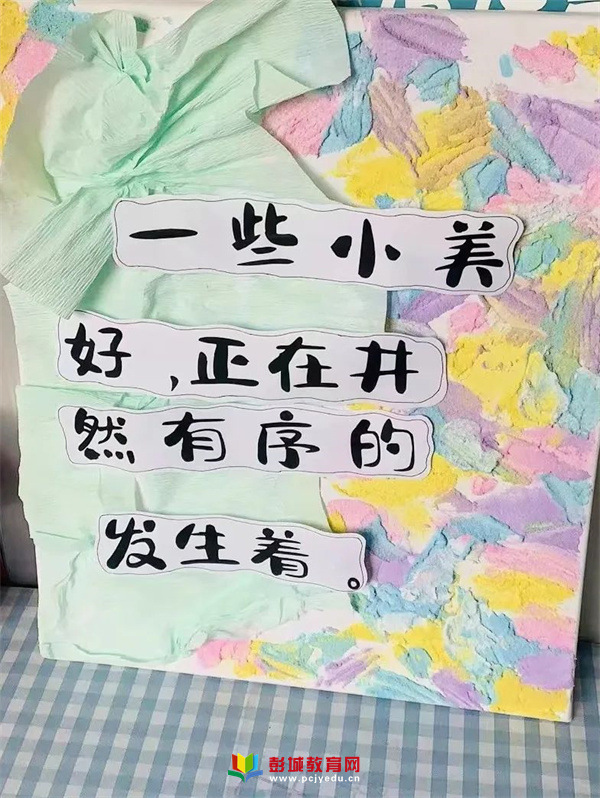 一些小美
好,正在井
然有序的
发生着。
彭城教育网
www.pcjyedu.cn